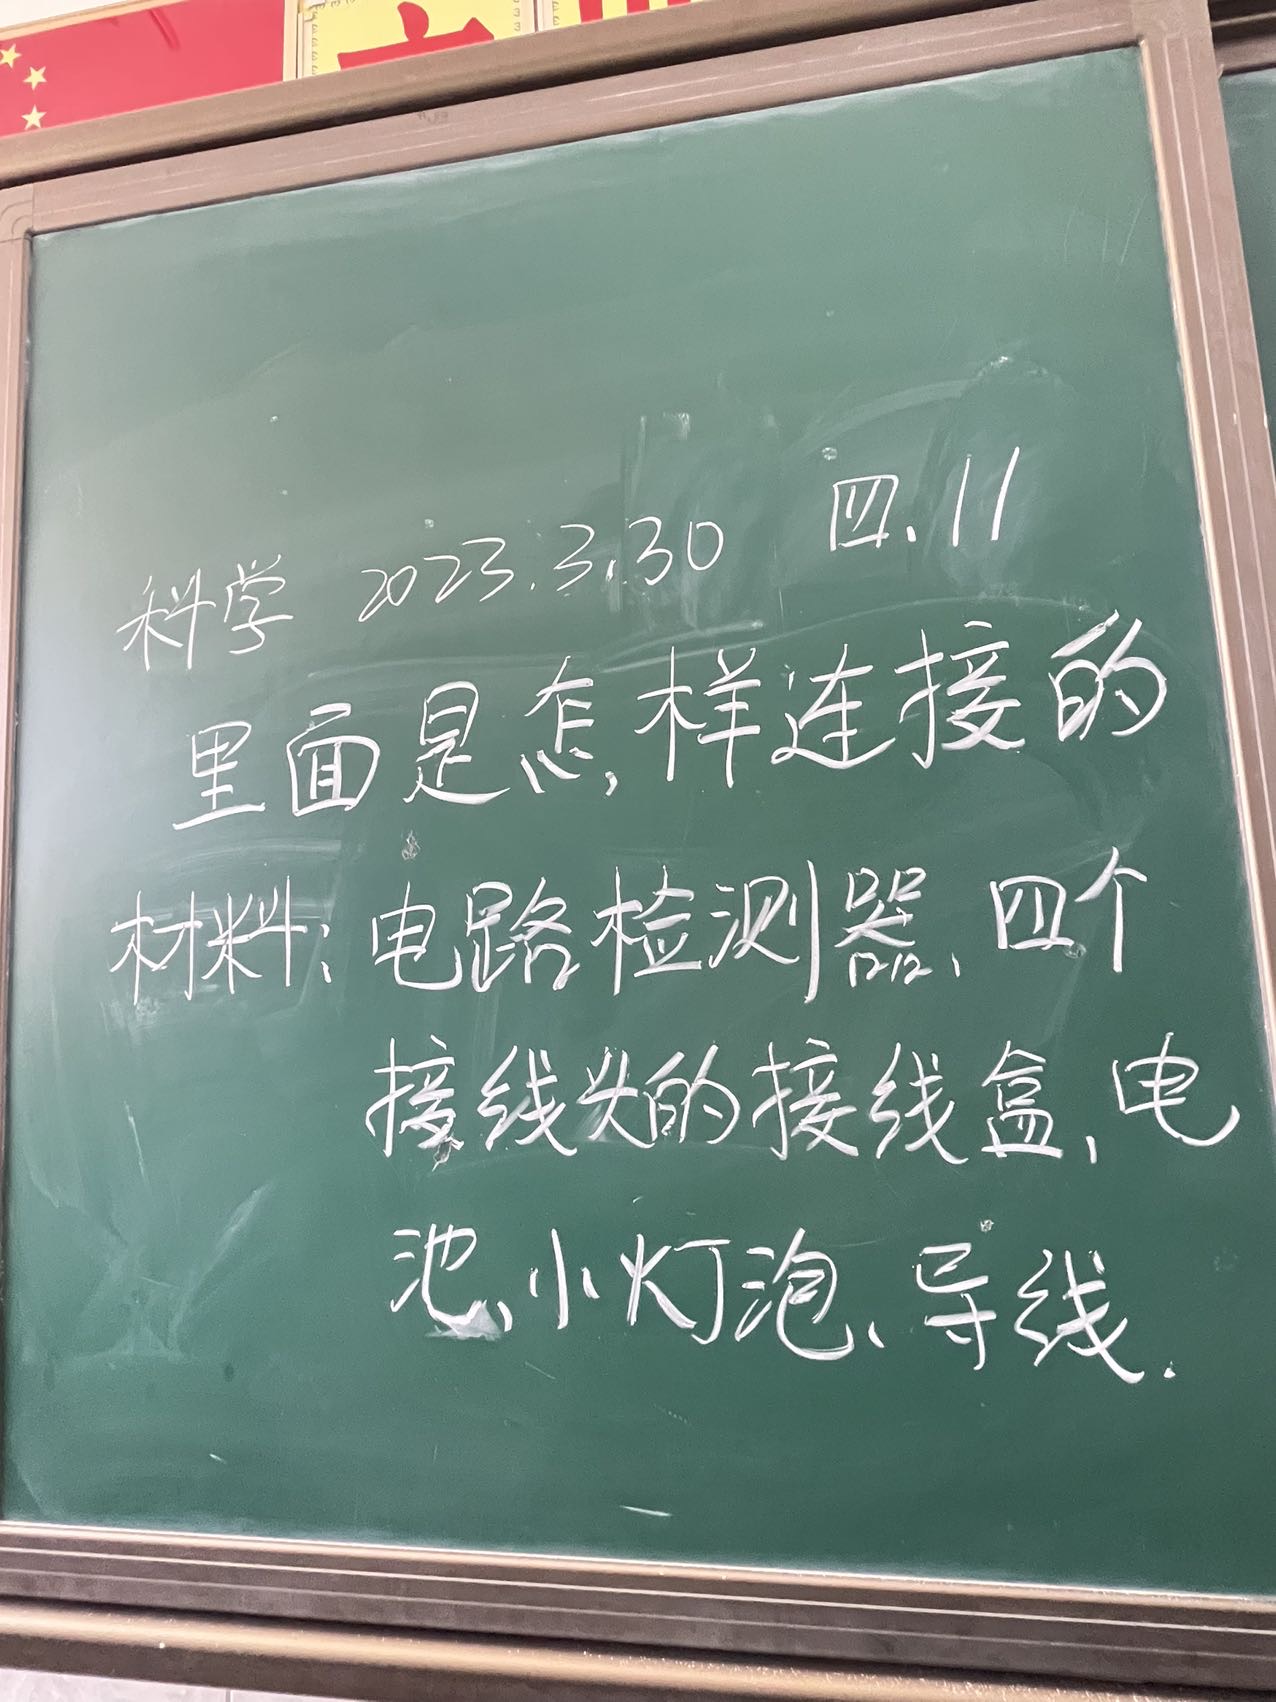 科学 2023.3.30 四.11
里面是怎样连接的
材料:电路检测器、四个
接线头的接线盒、电
池、小灯泡、导线.